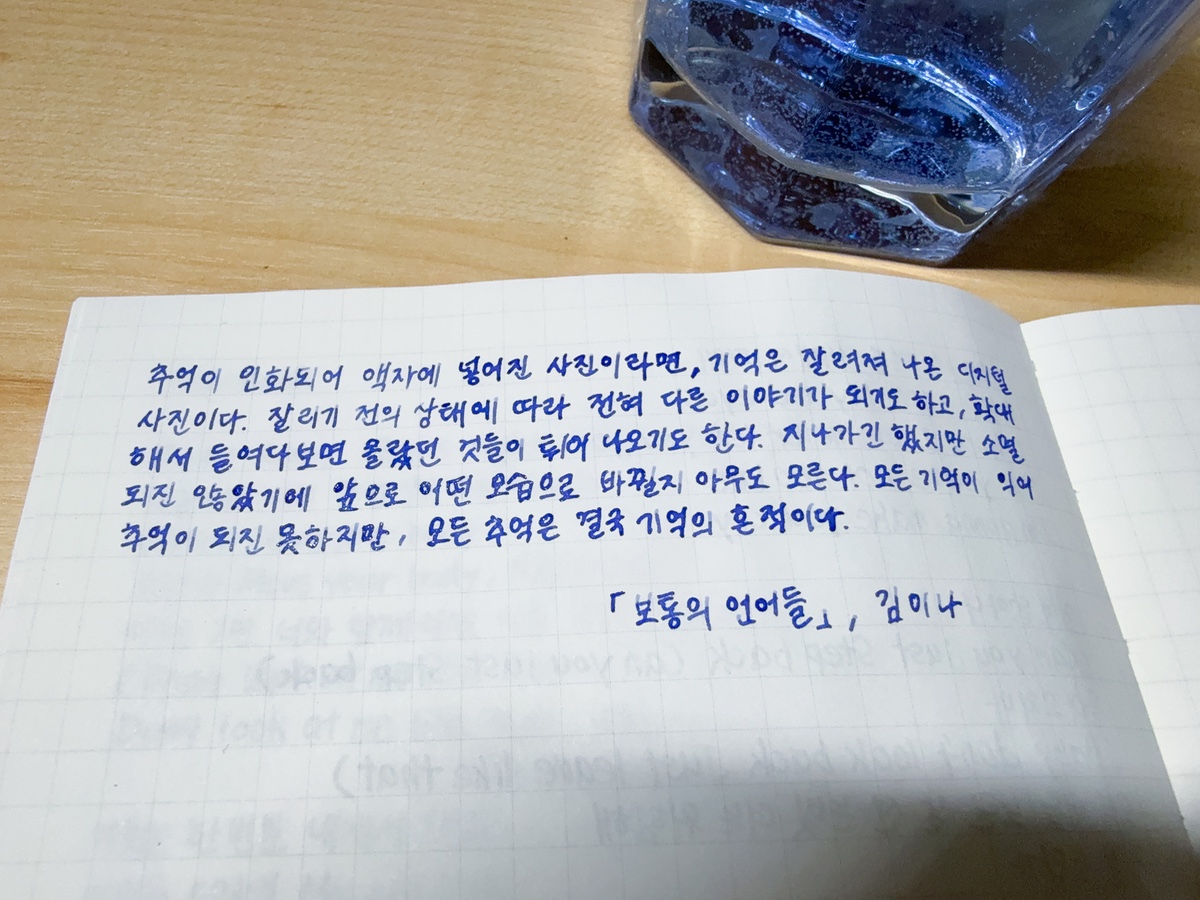 추억이 인화되어 액자에 넣어진 사진이라면, 기억은 잘려져 나온 디지털
사진이다. 잘리기 전의 상태에 따라 전혀 다른 이야기가 되기도 하고, 확대
해서 들여다보면 몰랐던 것들이 튀어 나오기도 한다. 지나가긴 했지만 소멸
되진 않았기에 앞으로 어떤 모습으로 바뀔지 아무도 모른다. 모든 기억이
추억이 되진 못하지만, 모든 추억은 결국 기억의 흔적이다.
「보통의 언어들」, 김이나
can you just step back (can you just step back)
don't look back just leave like that)